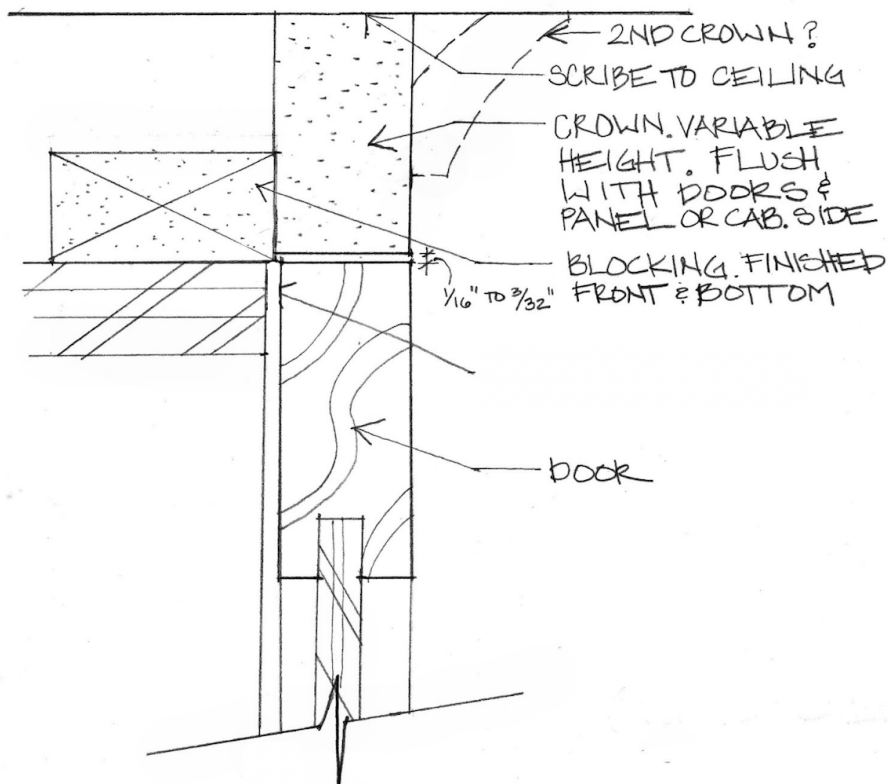 2ND CROWN?
SCRIBE TO CEILING
CROWN. VARIABLE
HEIGHT. FLUSH
WITH DOORS &
PANEL OR CAB. SIDE
BLOCKING. FINISHED
FRONT & BOTTOM
1/16" TO 3/32"
DOOR